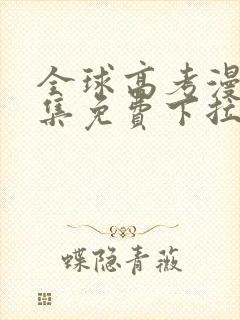 全球高考漫
集免费下拉
蝶隐青薇